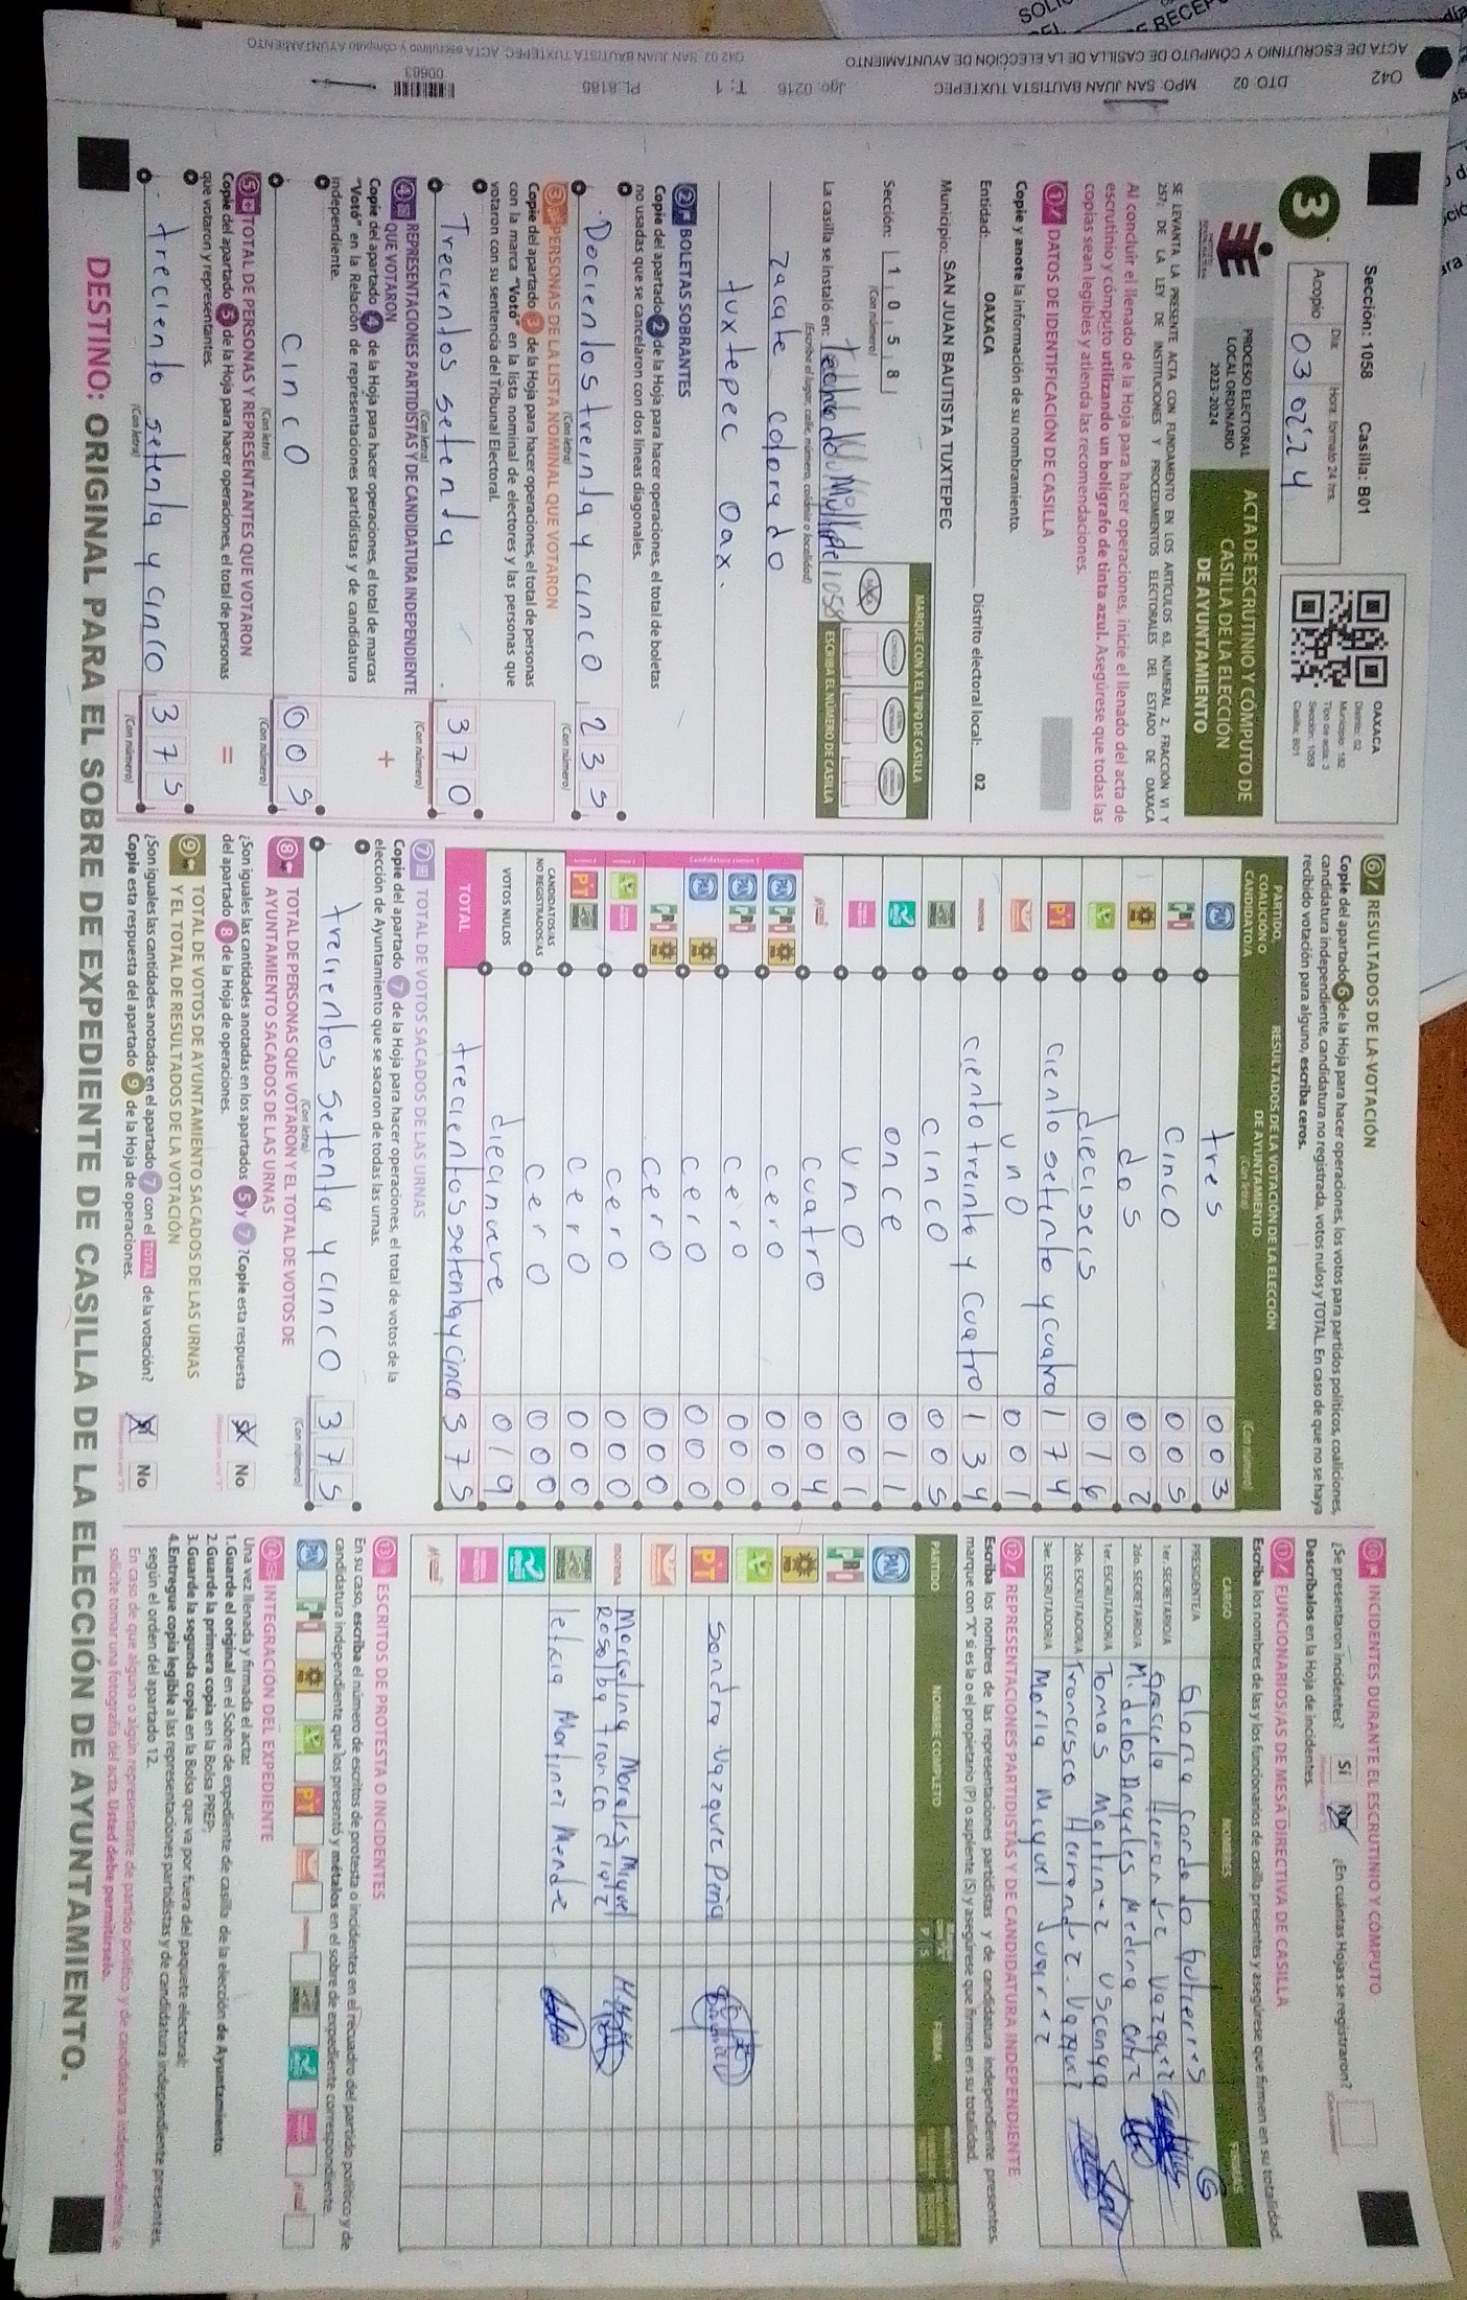 Sección: 1058 Casilla: B01
3
Acopio
Día:
Hora: formato 24 hrs.
03 02:24
OAXACA
Distrito: 02
Municipio: 182
Tipo de acta: 3
Sección: 1058
Casilla: B01
PROCESO ELECTORAL
LOCAL ORDINARIO
2023-2024
ACTA DE ESCRUTINIO Y CÓMPUTO DE
CASILLA DE LA ELECCIÓN
DE AYUNTAMIENTO
SE LEVANTA LA PRESENTE ACTA CON FUNDAMENTO EN LOS ARTÍCULOS 63, NUMERAL 2, FRACCIÓN VI Y
257; DE LA LEY DE INSTITUCIONES Y PROCEDIMIENTOS ELECTORALES DEL ESTADO DE OAXACA
Al concluir el llenado de la Hoja para hacer operaciones, inicie el llenado del acta de
escrutinio y cómputo utilizando un bolígrafo de tinta azul. Asegúrese que todas las
copias sean legibles y atienda las recomendaciones.
1 DATOS DE IDENTIFICACIÓN DE CASILLA
Copie y anote la información de su nombramiento.
Entidad: OAXACA Distrito electoral local: 02
Municipio: SAN JUAN BAUTISTA TUXTEPEC
Sección: 1 0 5 8
(Con número)
MARQUE CON X EL TIPO DE CASILLA
ESCRIBA EL NÚMERO DE CASILLA
La casilla se instaló en: Techado Multiple 1058
(Escriba el lugar, calle, número, colonia o localidad)
zacate colorado
tuxtepec Oax.
2 BOLETAS SOBRANTES
Copie del apartado 2 de la Hoja para hacer operaciones, el total de boletas
no usadas que se cancelaron con dos líneas diagonales.
Docientos treinta y cinco 235
(Con letra) (Con número)
3 PERSONAS DE LA LISTA NOMINAL QUE VOTARON
Copie del apartado 3 de la Hoja para hacer operaciones, el total de personas
con la marca "Votó" en la lista nominal de electores y las personas que
votaron con su sentencia del Tribunal Electoral.
Trecientos setenta 370
(Con letra) (Con número)
4 REPRESENTACIONES PARTIDISTAS Y DE CANDIDATURA INDEPENDIENTE
QUE VOTARON
Copie del apartado 4 de la Hoja para hacer operaciones, el total de marcas
"Votó" en la Relación de representaciones partidistas y de candidatura
independiente.
+
cinco 005
(Con letra) (Con número)
5 TOTAL DE PERSONAS Y REPRESENTANTES QUE VOTARON
Copie del apartado 5 de la Hoja para hacer operaciones, el total de personas
que votaron y representantes.
=
treciento setenta y cinco 375
(Con letra) (Con número)
6 RESULTADOS DE LA VOTACIÓN
Copie del apartado 6 de la Hoja para hacer operaciones, los votos para partidos políticos, coaliciones,
candidatura independiente, candidatura no registrada, votos nulos y TOTAL. En caso de que no se haya
recibido votación para alguno, escriba ceros.
PARTIDO,
COALICIÓN O
CANDIDATO/A
RESULTADOS DE LA VOTACIÓN DE LA ELECCIÓN
DE AYUNTAMIENTO
(Con letra) (Con número)
PAN tres 003
PRI cinco 005
PRD dos 002
dieciseis 016
PT ciento setenta y cuatro 174
uno 001
morena ciento treinta y cuatro 134
cinco 005
once 011
uno 001
cuatro 004
PAN PRI PRD cero 000
PAN PRI cero 000
PAN PRD cero 000
PRI PRD cero 000
cero 000
PT cero 000
CANDIDATOS/AS
NO REGISTRADOS/AS cero 000
VOTOS NULOS diecinueve 019
TOTAL trecientos setenta y cinco 375
7 TOTAL DE VOTOS SACADOS DE LAS URNAS
Copie del apartado 7 de la Hoja para hacer operaciones, el total de votos de la
elección de Ayuntamiento que se sacaron de todas las urnas.
trecientos setenta y cinco 375
(Con letra) (Con número)
8 TOTAL DE PERSONAS QUE VOTARON Y EL TOTAL DE VOTOS DE
AYUNTAMIENTO SACADOS DE LAS URNAS
¿Son iguales las cantidades anotadas en los apartados 5 y 7? Copie esta respuesta
del apartado 8 de la Hoja de operaciones.
Sí No
9 TOTAL DE VOTOS DE AYUNTAMIENTO SACADOS DE LAS URNAS
Y EL TOTAL DE RESULTADOS DE LA VOTACIÓN
¿Son iguales las cantidades anotadas en el apartado 7 con el TOTAL de la votación?
Copie esta respuesta del apartado 9 de la Hoja de operaciones.
Sí No
10 INCIDENTES DURANTE EL ESCRUTINIO Y CÓMPUTO
¿Se presentaron incidentes? Sí No ¿En cuántas Hojas se registraron?
Descríbalos en la Hoja de incidentes.
11 FUNCIONARIOS/AS DE MESA DIRECTIVA DE CASILLA
Escriba los nombres de las y los funcionarios de casilla presentes y asegúrese que firmen en su totalidad.
CARGO NOMBRES FIRMAS
PRESIDENTE/A Gloria Condado Gutierres
1er. SECRETARIO/A Graciela Hernandez Vazquez
2do. SECRETARIO/A M. de los Angeles Medina Ortiz
1er. ESCRUTADOR/A Tomas Martinez Uscanga
2do. ESCRUTADOR/A Francisco Hernandez Vazquez
3er. ESCRUTADOR/A Maria Miguel Juarez
12 REPRESENTACIONES PARTIDISTAS Y DE CANDIDATURA INDEPENDIENTE
Escriba los nombres de las representaciones partidistas y de candidatura independiente presentes,
marque con "X" si es la o el propietario (P) o suplente (S) y asegúrese que firmen en su totalidad.
PARTIDO NOMBRE COMPLETO P S FIRMA
PAN
PRI
PRD
PT Sandra Vazquez Peña
morena Marcelina Morales Miguel
Rosalba Franco diaz
leticia Martinez Mende
13 ESCRITOS DE PROTESTA O INCIDENTES
En su caso, escriba el número de escritos de protesta o incidentes en el recuadro del partido político y de
candidatura independiente que los presentó y métalos en el sobre de expediente correspondiente.
14 INTEGRACIÓN DEL EXPEDIENTE
Una vez llenada y firmada el acta:
1.Guarde el original en el Sobre de expediente de casilla de la elección de Ayuntamiento;
2.Guarde la primera copia en la Bolsa PREP;
3.Guarde la segunda copia en la Bolsa que va por fuera del paquete electoral;
4.Entregue copia legible a las representaciones partidistas y de candidatura independiente presentes,
según el orden del apartado 12.
En caso de que alguna o algún representante de partido político y de candidatura independiente, le
solicite tomar una fotografía del acta, Usted debe permitírselo.
DESTINO: ORIGINAL PARA EL SOBRE DE EXPEDIENTE DE CASILLA DE LA ELECCIÓN DE AYUNTAMIENTO.
042 DTO: 02 MPO: SAN JUAN BAUTISTA TUXTEPEC Jgo: 0216 T: 1 PL: 8185 00683
ACTA DE ESCRUTINIO Y CÓMPUTO DE CASILLA DE LA ELECCIÓN DE AYUNTAMIENTO
042 02 SAN JUAN BAUTISTA TUXTEPEC ACTA escrutinio y computo AYUNTAMIENTO